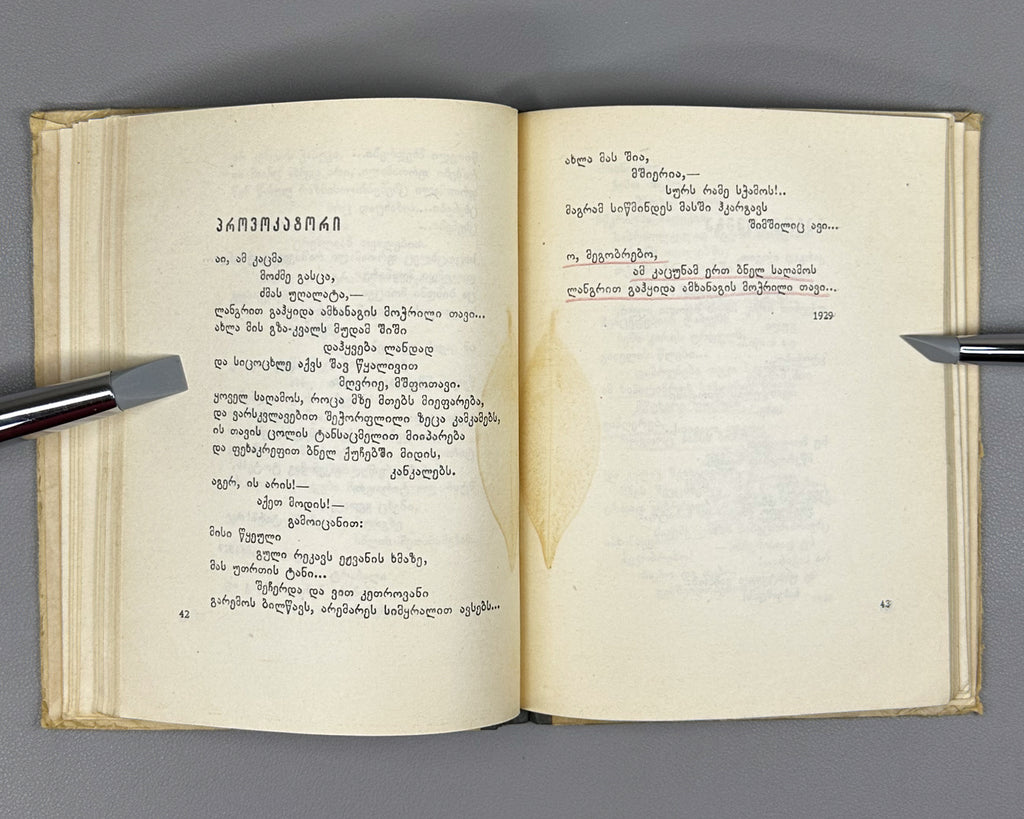 პროვოკატორი
აი, ამ კაცმა
მოძმე გასცა,
ძმას უღალატა,—
ლანგრით გაჰყიდა ამხანაგის მოჭრილი თავი...
ახლა მის გზა-კვალს მუდამ შიში
დაჰყვება ლანდად
და სიცოცხლე აქვს შავ წყალივით
მღვრიე, მშფოთავი.
ყოველ საღამოს, როცა მზე მთებს მიეფარება,
და ვარსკვლავებით შეჭორფლილი ზეცა კამკამებს,
ის თავის ცოლის ტანსაცმელით მიიპარება
და ფეხაკრეფით ბნელ ქუჩებში მიდის,
კანკალებს.
აგერ, ის არის!—
აქეთ მოდის!—
გამოიცანით:
მისი წყეული
გული რეკავს ეჟვანის ხმაზე,
მას უთრთის ტანი...
შეჩერდა და ვით კეთროვანი
გარემოს ბილწავს, არემარეს სიმყრალით ავსებს...
42
ახლა მას შია,
მშიერია,—
სურს რამე სჭამოს!..
მაგრამ სიწმინდეს მასში ჰკარგავს
შიმშილიც ავი...
ო, მეგობრებო,
ამ კაცუნამ ერთ ბნელ საღამოს
ლანგრით გაჰყიდა ამხანაგის მოჭრილი თავი...
1929
43